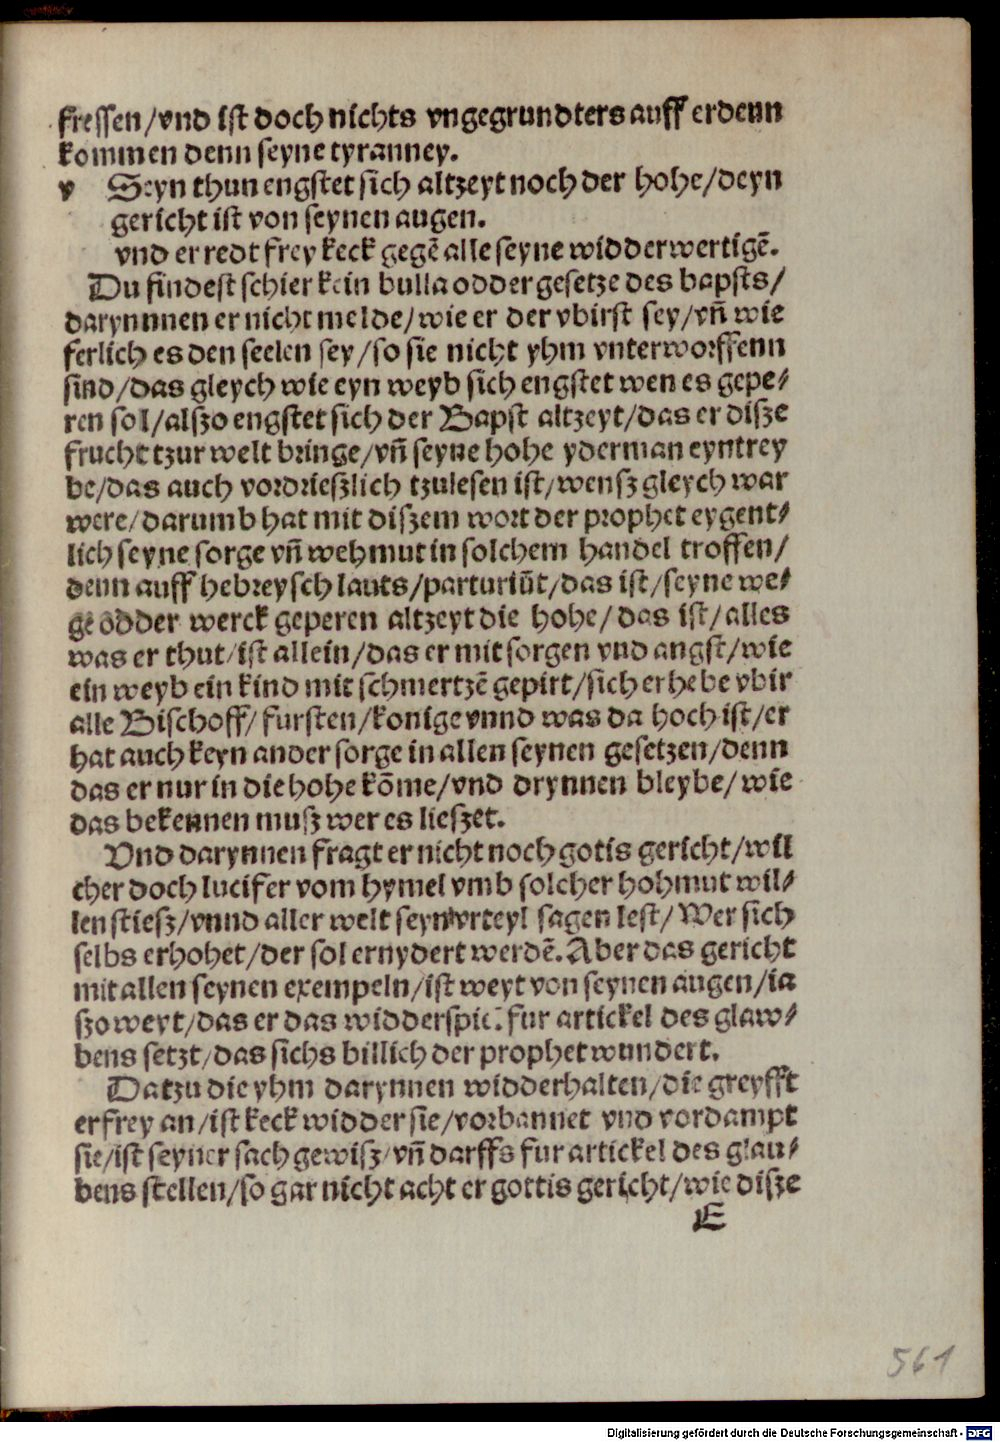 fressen/vnd ist doch nichts vngegrundters auff erdenn
kommen denn seyne tyranney.
v Seyn thun engstet sich altzeyt noch der hohe/deyn
gericht ist von seynen augen.
vnd er redt frey keck gegē alle seyne widderwertigē.
Du findest schier kein bulla odder gesetze des bapsts/
darynnnen er nicht melde/wie er der vbirst sey/vn̄ wie
ferlich es den seelen sey/so sie nicht yhm vnterworffenn
sind/das gleych wie eyn weyb sich engstet wen es gepe⸗
ren sol/alszo engstet sich der Bapst altzeyt/das er disze
frucht tzur welt bringe/vn̄ seyne hohe yderman eyntrey
be/das auch vordrieszlich tzulesen ist/wensz gleych war
were/darumb hat mit diszem wort der prophet eygent⸗
lich seyne sorge vn̄ wehmut in solchem handel troffen/
denn auff hebreysch lauts/parturiūt/das ist/seyne we⸗
ge odder werck geperen altzeyt die hohe/das ist/alles
was er thut/ist allein/das er mit sorgen vnd angst/wie
ein weyb ein kind mit schmertzē gepirt/sich erhebe vbir
alle Bischoff/fursten/konige vnnd was da hoch ist/er
hat auch keyn ander sorge in allen seynen gesetzen/denn
das er nur in die hohe kōme/vnd drynnen bleybe/wie
das bekennen musz wer es lieszet.
Vnd darynnen fragt er nicht noch gotis gericht/wil
cher doch lucifer vom hymel vmb solcher hohmut wil⸗
len stiesz/vnnd aller welt seyn vrteyl sagen lest/Wer sich
selbs erhohet/der sol ernydert werdē. Aber das gericht
mit allen seynen exempeln/ist weyt von seynen augen/ia
szo weyt/das er das widderspiel fur artickel des glaw⸗
bens setzt/das sichs billich der prophet wundert.
Datzu die yhm darynnen widderhalten/die greyfft
er frey an/ist keck widder sie/vorbannet vnd vordampt
sie/ist seyner sach gewisz/vn̄ darffs fur artickel des glau⸗
bens stellen/so gar nicht acht er gottis gericht/wie disze
E
561
Digitalisierung gefördert durch die Deutsche Forschungsgemeinschaft - DFG